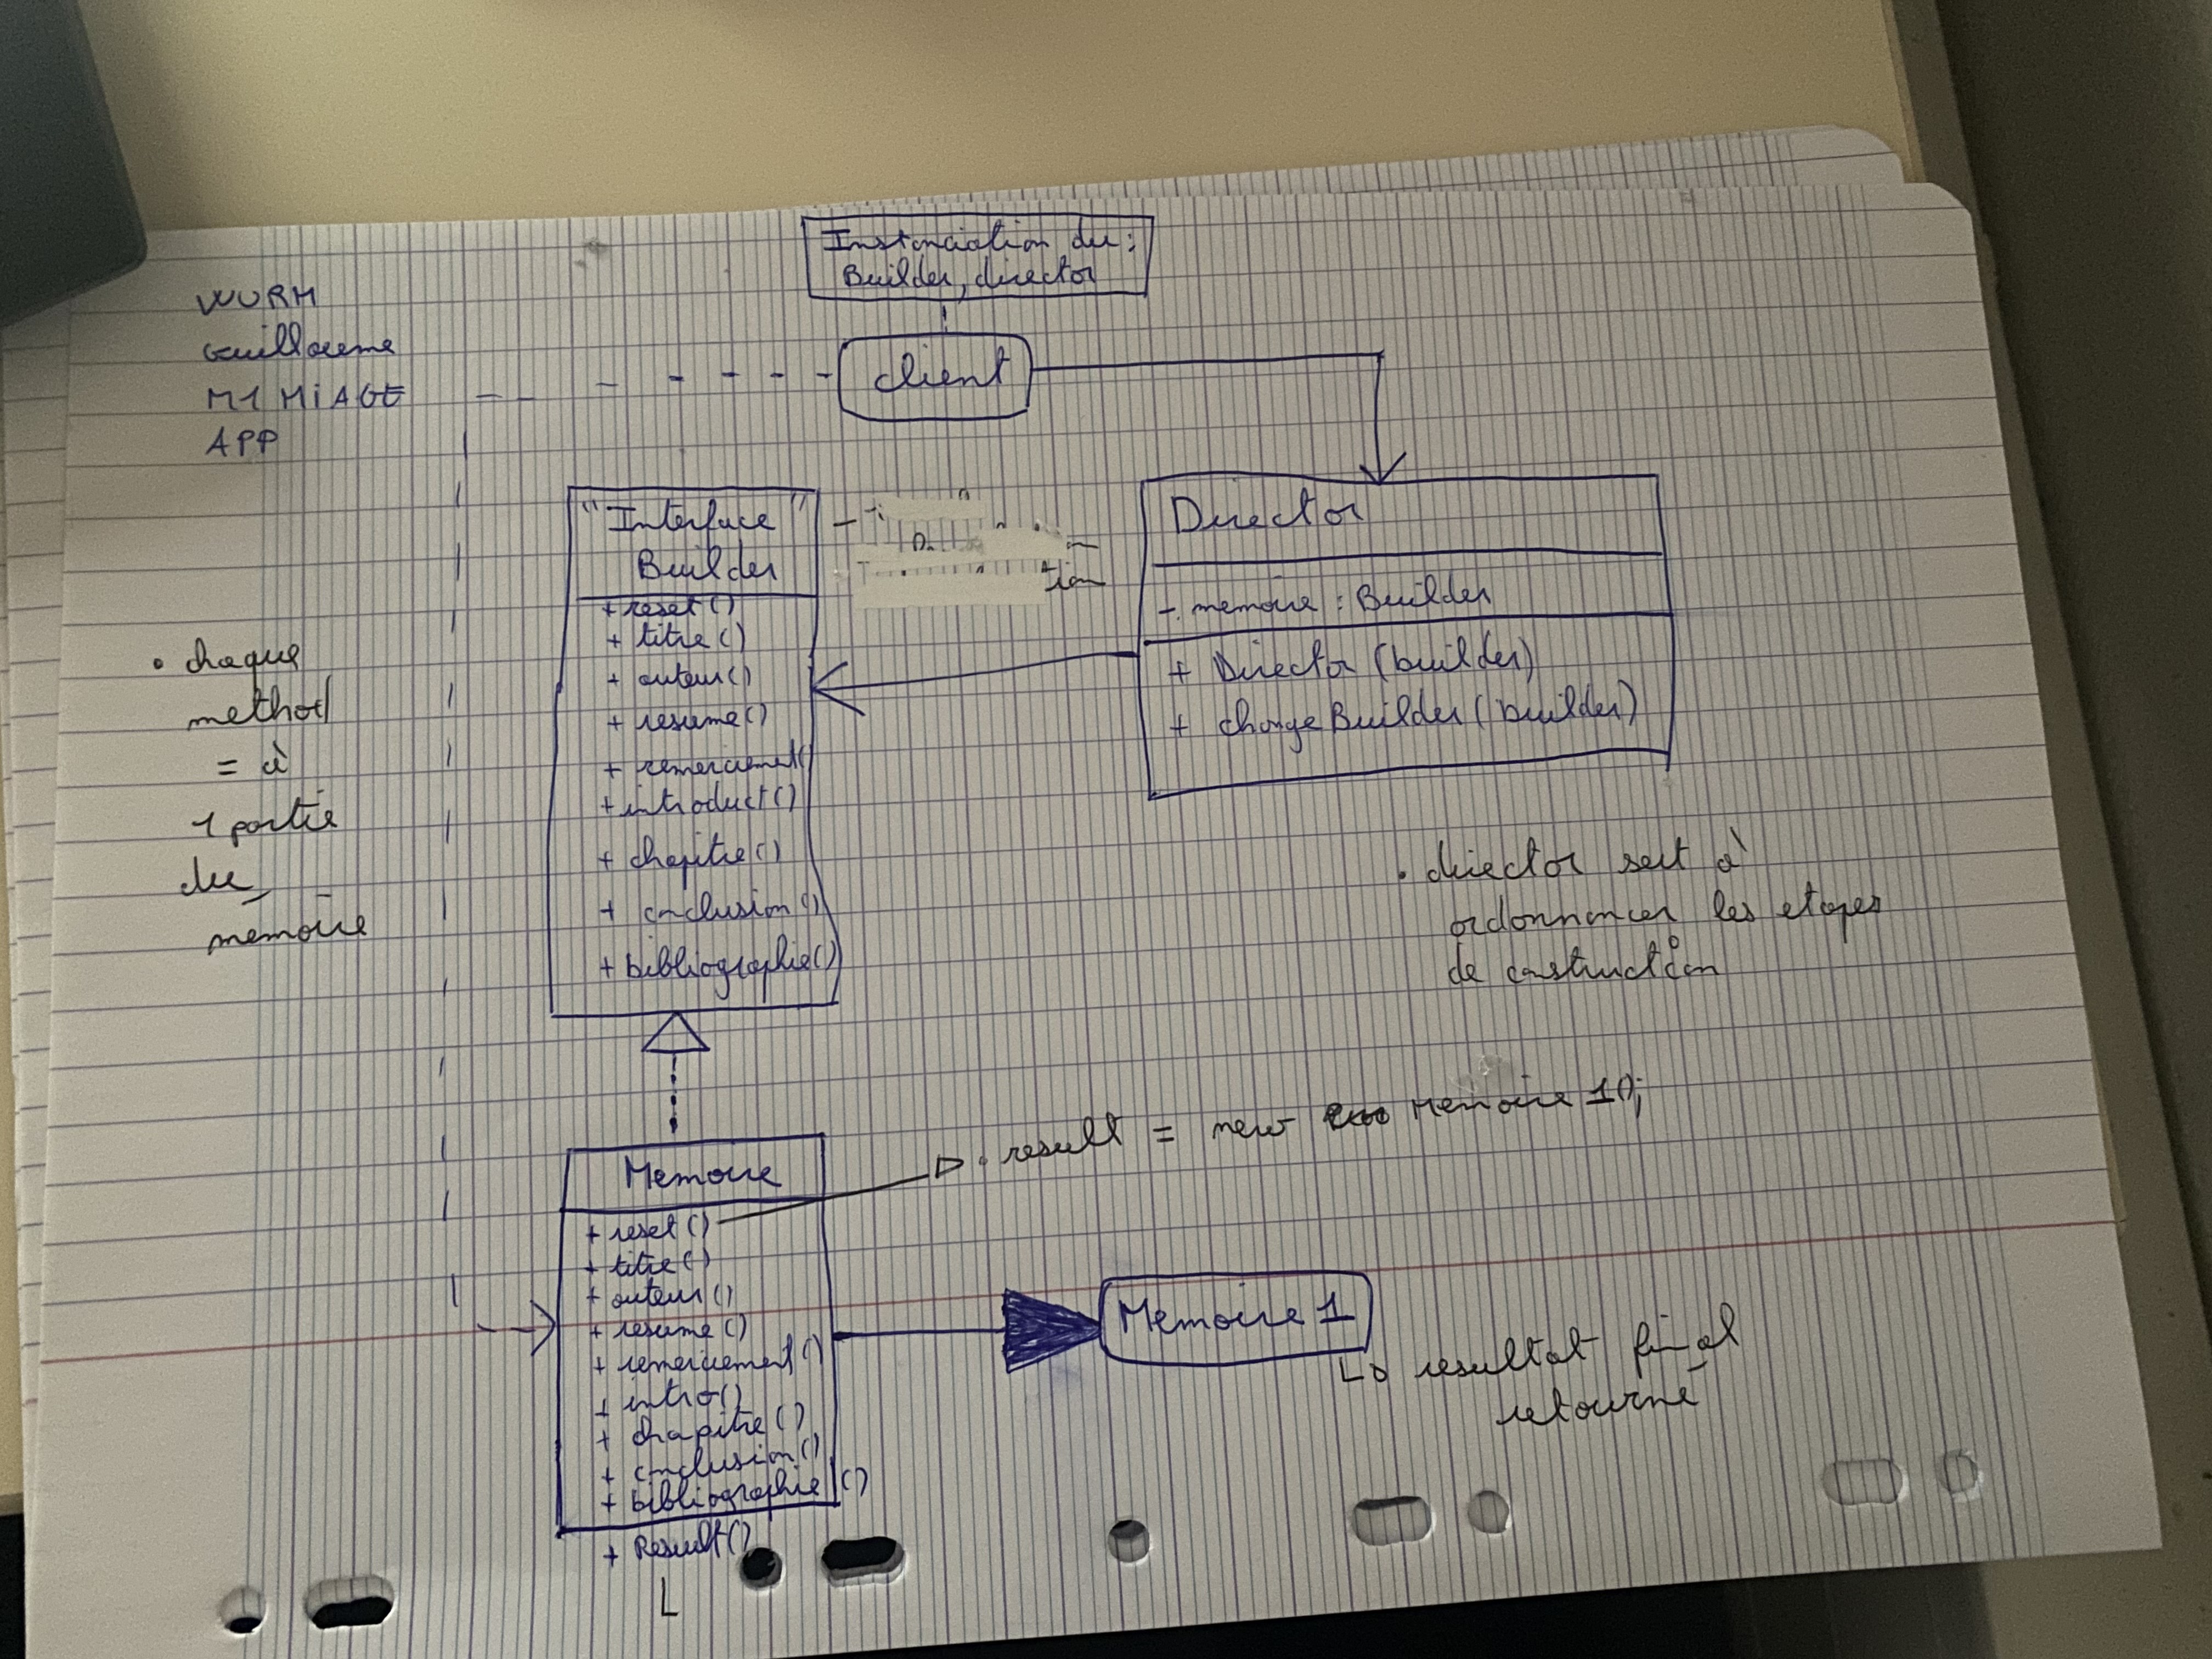 Instanciation du :
Builder, director
WURM
Guillaume
M1 MiAGE
APP
client
"Interface"
Builder
+ reset()
+ titre()
+ auteur()
+ resume()
+ remerciement(
+ introduct()
+ chapitre()
+ conclusion()
+ bibliographie()
tion
Director
- memoire : Builder
+ Director (builder)
+ changeBuilder (builder)
• chaque
method
= à
1 partie
du
mémoire
• director sert à
ordonnancer les etapes
de construction
Memoire
+ reset()
+ titre()
+ auteur()
+ resume()
+ remerciement()
+ intro()
+ chapitre()
+ conclusion()
+ bibliographie()
+ Result()
L
• result = new Memoire 1();
Memoire 1
resultat final
retourné